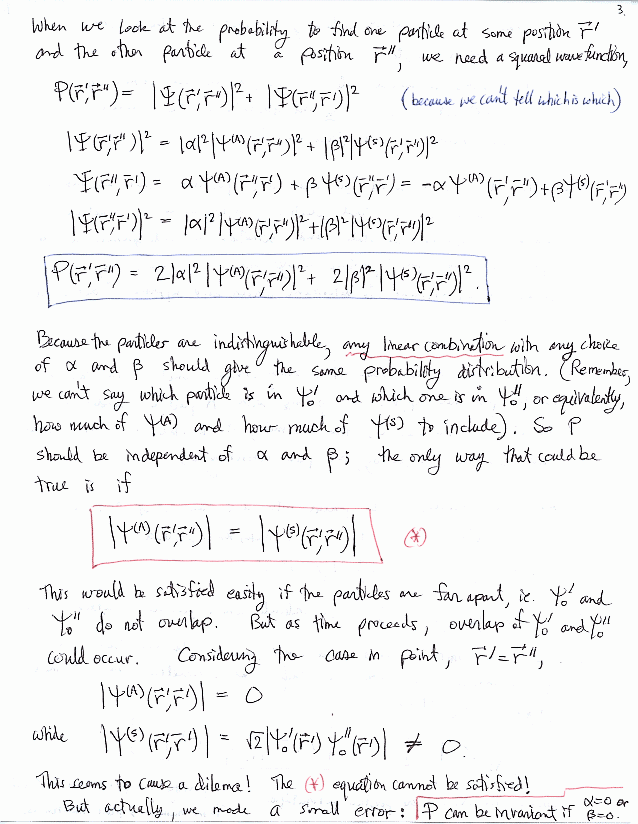 3.
When we look at the probability to find one particle at some position r⃗'
and the other particle at a position r⃗'', we need a squared wave function,
P(r⃗',r⃗'') = |Ψ(r⃗',r⃗'')|² + |Ψ(r⃗'',r⃗')|² (because we can't tell which is which)
|Ψ(r⃗',r⃗'')|² = |α|²|ψ^(A)(r⃗',r⃗'')|² + |β|²|ψ^(S)(r⃗',r⃗'')|²
Ψ(r⃗'',r⃗') = αψ^(A)(r⃗'',r⃗') + βψ^(S)(r⃗'',r⃗') = -αψ^(A)(r⃗',r⃗'') + βψ^(S)(r⃗',r⃗'')
|Ψ(r⃗'',r⃗')|² = |α|²|ψ^(A)(r⃗',r⃗'')|² + |β|²|ψ^(S)(r⃗',r⃗'')|²
P(r⃗',r⃗'') = 2|α|²|ψ^(A)(r⃗',r⃗'')|² + 2|β|²|ψ^(S)(r⃗',r⃗'')|².
Because the particles are indistinguishable, any linear combination with any choice
of α and β should give the same probability distribution. (Remember,
we can't say which particle is in ψ₀' and which one is in ψ₀'', or equivalently,
how much of ψ^(A) and how much of ψ^(S) to include). So P
should be independent of α and β; the only way that could be
true is if
|ψ^(A)(r⃗',r⃗'')| = |ψ^(S)(r⃗',r⃗'')| (*)
This would be satisfied easily if the particles are far apart, i.e. ψ₀' and
ψ₀'' do not overlap. But as time proceeds, overlap of ψ₀' and ψ₀''
could occur. Considering the case in point, r⃗'=r⃗'',
|ψ^(A)(r⃗',r⃗')| = 0
while |ψ^(S)(r⃗',r⃗')| = √2|ψ₀'(r⃗')ψ₀''(r⃗')| ≠ 0.
This seems to cause a dilema! The (*) equation cannot be satisfied!
But actually, we made a small error: P can be invariant if α=0 or β=0.